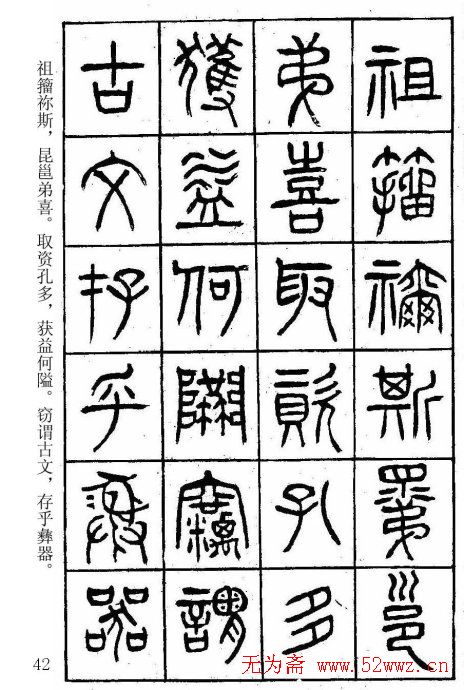 祖籀禰斯𥊽邕
弟喜取資孔多
獲益何隘竊謂
古文存乎彝器
祖籀祢斯，昆邕弟喜。取资孔多，获益何隘。窃谓古文，存乎彝器。
42
无为斋 www.52wwz.cn